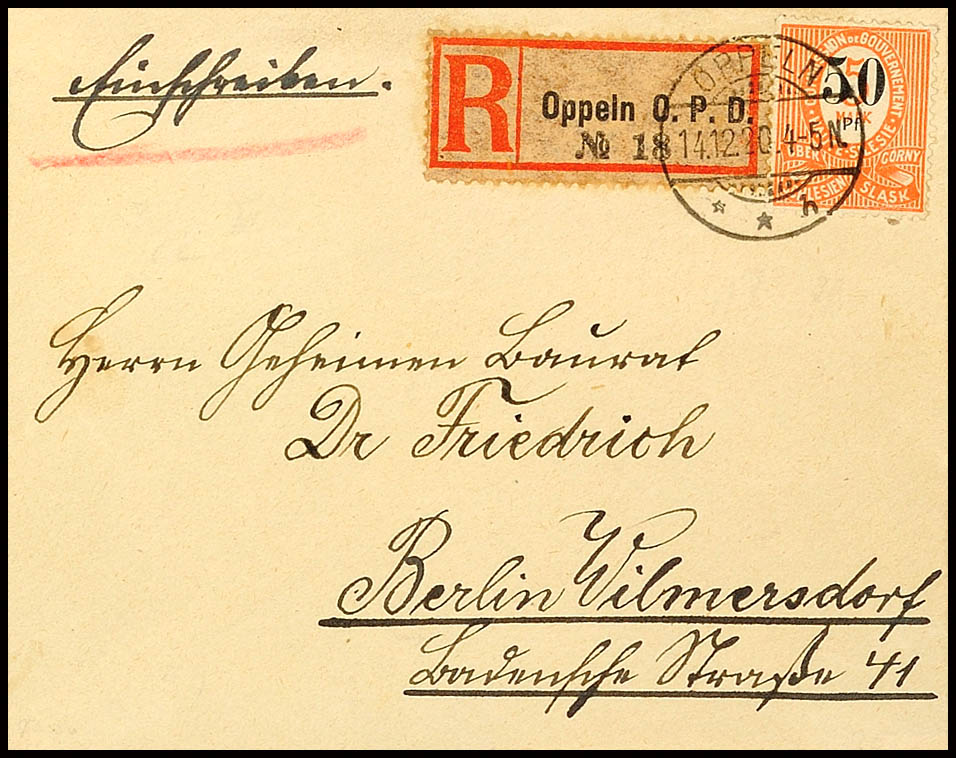 Einschreiben.
R
Oppeln O. P. D.
№ 18
OPPELN
14.12.20.4-5N.
h
50
Pf
5
MRK
GOUVERNEMENT
GÓRNY
ŚLĄSK
Herrn Geheimen Baurat
Dr Friedrich
Berlin Wilmersdorf
Badensche Straße 41